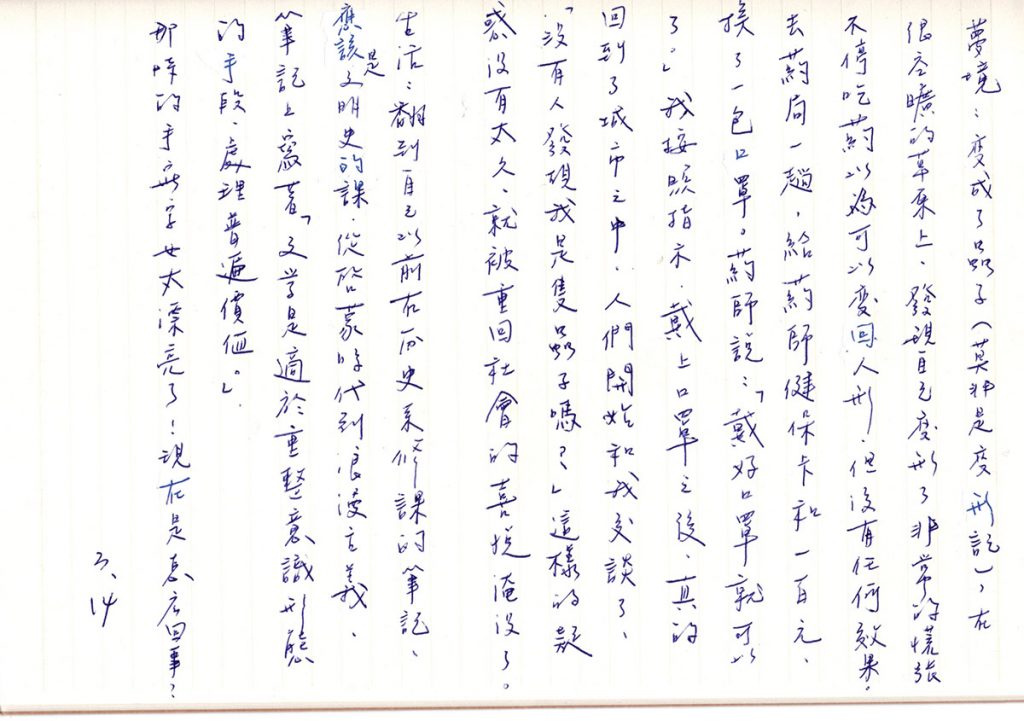 夢境：变成了蟲子（莫非是变形記），在
很空曠的草原上、發現自己变形了非常的慌張
不停吃葯以為可以变回人形，但沒有任何效果。
去葯局一趟，給葯師健保卡和一百元、
換了一包口罩。葯師說：「戴好口罩就可以
了。」我按照指示．戴上口罩之後、真的
回到了城市之中、人們開始和我交談了、
「沒有人發現我是隻蟲子嗎？」這樣的疑
惑沒有太久、就被重回社會的喜悅淹沒了。
生活：翻到自己以前在历史系修課的筆記、
應該是文明史的課．從啓蒙時代到浪漫主義、
筆記上寫著「文学是適於重整意識形態
的手段、處理普遍價值。」．
那時的手寫字也太漂亮了！現在是怎么回事？
3、14